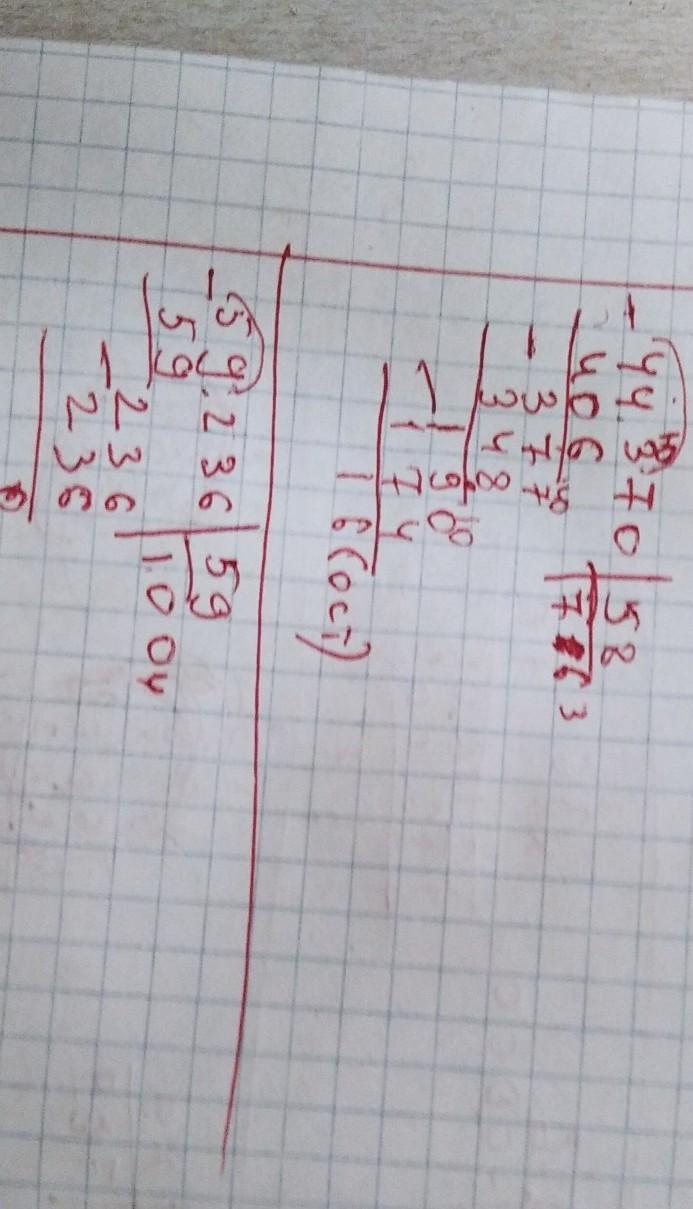 - 44370 | 58
406 | 763
- 377
348
- 190
174
16 (ост)
- 59236 | 59
59 | 1004
- 236
236
0